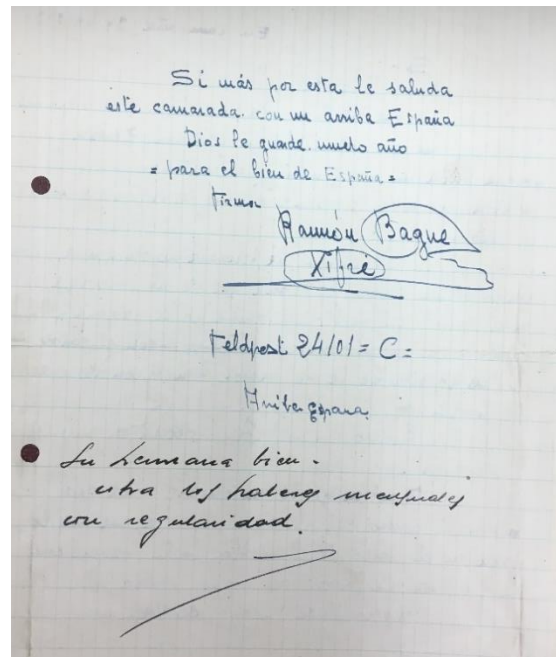 Si más por esta le saluda
este camarada. con un arriba España
Dios le guarde. mucho año
= para el bien de España =
Firma
Ramón Bague
Xifré
Feldpost 24101 = C =
Arriba España
Su hermana bien.
cobra los haberes mensuales
con regularidad.